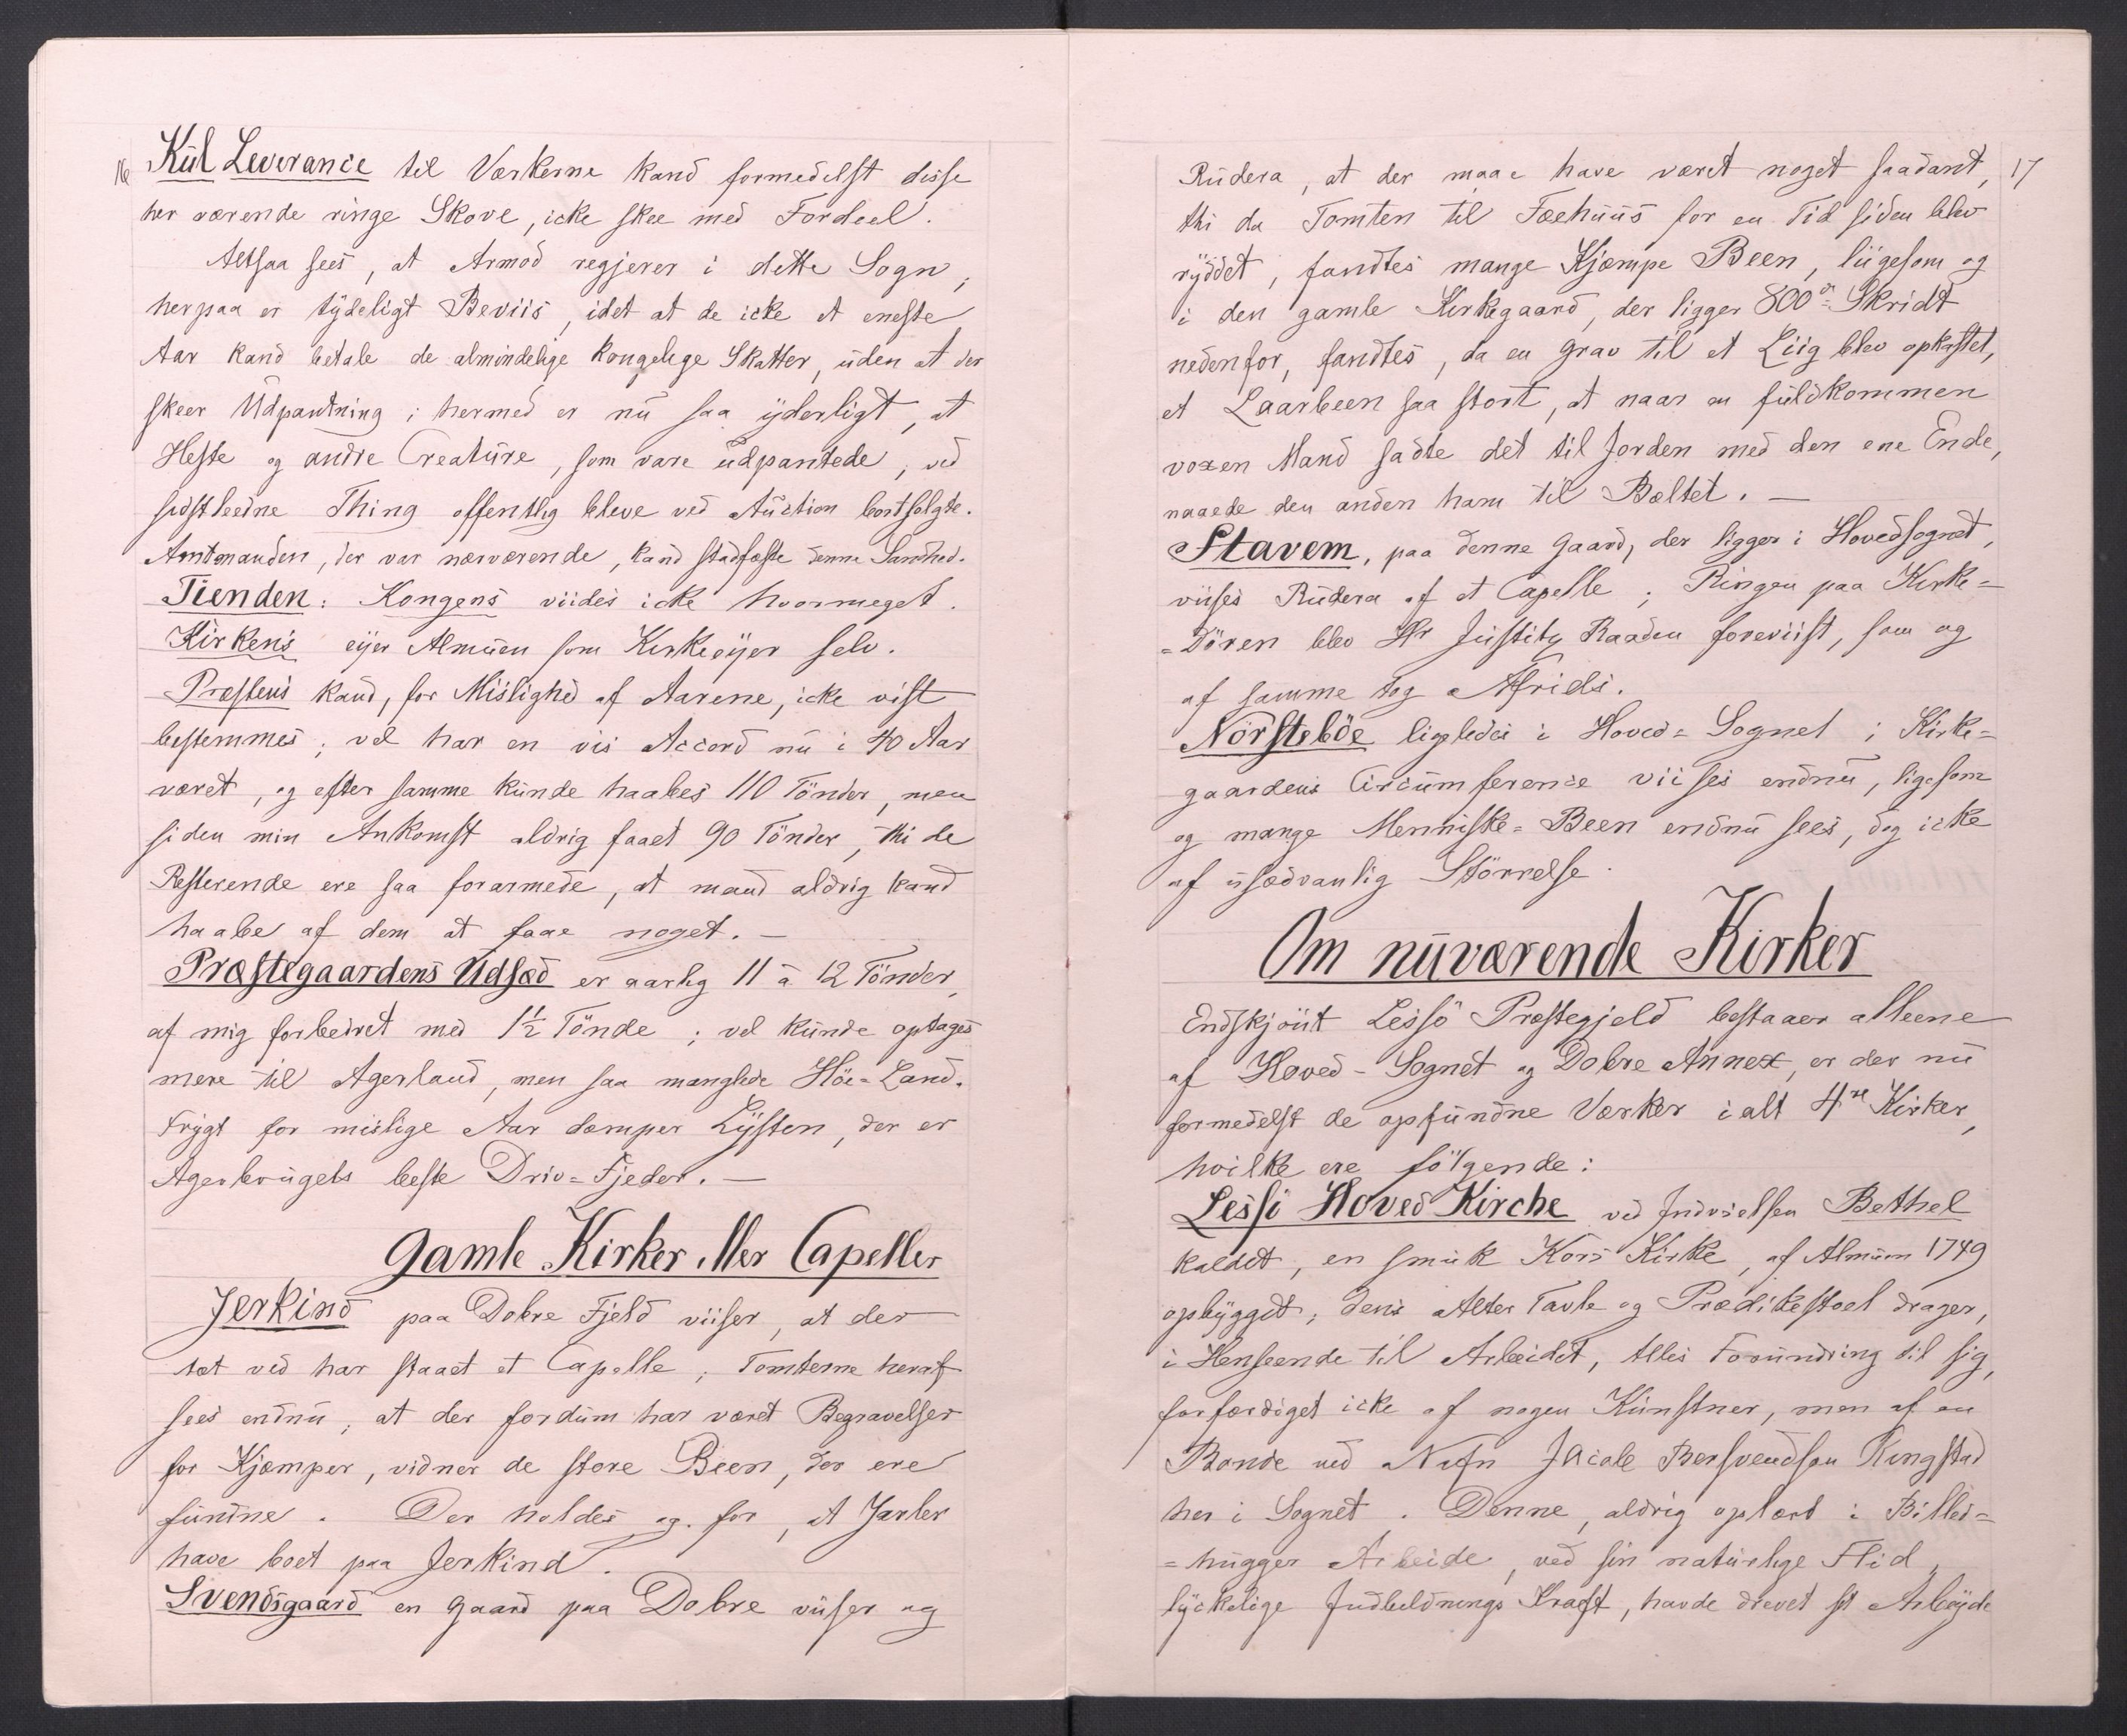 16
Kül Leverance til Værkerne kand formedelst disse
her værende ringe Skove, icke skee med Fordeel.
Altsaa sees, at Armod regjerer i dette Sogn,
herpaa er tÿdeligt Beviis, idet at de icke et eneste
Aar kand betale de almindelige kongelige Skatter, üden at der
skeer Üdpantning; hermed er nü saa ÿderligt, at
Heste og andre Creatüre, som vare üdpantede, ved
sidstleedne Thing offentlig bleve ved Aüction bortsolgte.
Amtmanden, der var nærværende, kand stadfæste denne Sandhed.
Tienden: Kongens viides icke hvormeget.
Kirkens eÿer Almüen som Kirkeeÿer selv.
Præstens kand, for Mislighed af Aarene, icke vist
bestemmes; vel har en vis Accord nü i 40 Aar
været, og efter samme künde haabes 110 Tönder, men
siden min Ankomst aldrig faaet 90 Tönder, thi de
Resterende ere saa forarmede, at mand aldrig kand
haabe af dem at faae noget. —
Præstegaardens Üdsæd er aarlig 11 à 12 Tönder,
af mig forbedret med 1½ Tönde; vel künde optages
mere til Agerland, men saa manglede Höe=Land.
Frÿgt for mislige Aar dæmper Lÿsten, der er
Agerbrügets beste Driv=Fjeder. —
Gamle Kirker eller Capeller
Jerkind paa Dobre Fjeld viiser, at der
tæt ved har staaet et Capelle; Tomterne heraf
sees endnü; at der fordüm har været Begravelser
for Kjæmper, vidner de store Been, der ere
fündne. Der holdes og for, at Jarler
have boet paa Jerkind.
Svendsgaard en Gaard paa Dobre viiser og
17
Rüdera, at der maae have været noget saadant,
thi da Tomten til Fæehüüs for en Tid siden blev
rÿddet, fandtes mange Kjæmpe Been, liigesom og
i den gamle Kirkegaard, der ligger 800de Skridt
nedenfor, fandtes, da en Grav til et Liig blev opkastet,
et Laarbeen saa stort, at naar en füldkommen
voxen Mand sadte det til Jorden med den ene Ende,
naaede den anden ham til Bæltet. —
Stavem, paa denne Gaard, der ligger i Hovedsognet,
viises Rüdera af et Capelle; Ringen paa Kirke=
=Dören blev Hr Jüstitz Raaden foreviist, som og
af samme tog Afrids.
Nörsteböe ligeledes i Hoved=Sognet; Kirke=
gaardens Circümference viises endnü, ligesom
og mange Menniske=Been endnü sees, dog icke
af üsædvanlig Störrelse.
Om nüværende Kirker
Endskjöüt Lessö Præstegjeld bestaaer alleene
af Hoved-Sognet og Dobre Annex, er der nü
formedelst de opfündne Værker i alt 4re Kirker,
hvilke ere fölgende:
Lessö Hoved Kirche ved Indvielsen Bethel
kaldet, en smük Kors Kirke, af Almüen 1749
opbÿgget; dens Alter Tavle og Prædikestoel drager,
i Henseende til Arbeidet, Alles Foründring til sig,
forfærdiget icke af nogen Künstner, men af en
Bonde ved Nafn Jacob Bersvendsen Ringstad
her i Sognet. Denne, aldrig oplært i Billed=
=hügger Arbeide, ved sin natürlige Flid,
lÿckelige Indbildnings Kraft, havde drevet sit Arbeÿde